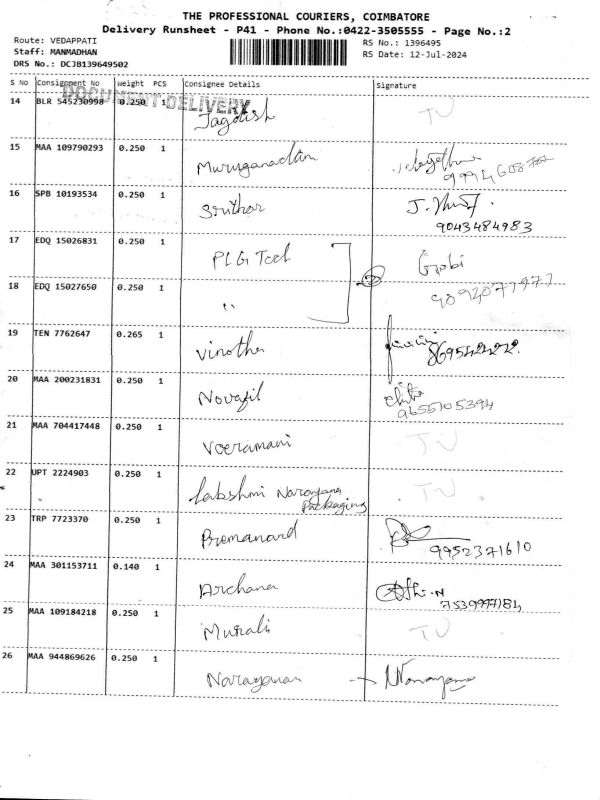 THE PROFESSIONAL COURIERS, COIMBATORE
Delivery Runsheet - P41 - Phone No.:0422-3505555 - Page No.:2
Route: VEDAPPATI
Staff: MANMADHAN
DRS No.: DCJB139649502
RS No.: 1396495
RS Date: 12-Jul-2024
S No Consignment No Weight PCS Consignee Details Signature
DOCUMENT DELIVERY
14 BLR 545230998 0.250 1 Jagdish TU
15 MAA 109790293 0.250 1 Muruganadam
16 SPB 10193534 0.250 1 Srithar J.
9043484983
17 EDQ 15026831 0.250 1 PLG Tech Gobi
18 EDQ 15027650 0.250 1 "
19 TEN 7762647 0.265 1 Vinotha
20 MAA 200231831 0.250 1 Novafil
9655105394
21 MAA 704417448 0.250 1 Veeramani TU
22 UPT 2224903 0.250 1 Lakshmi Narayana TU
Packaging
23 TRP 7723370 0.250 1 Premanand
9952371610
24 MAA 301153711 0.140 1 Archana
25 MAA 109184218 0.250 1 Murali TU
26 MAA 944869626 0.250 1 Narayanan → Narayana